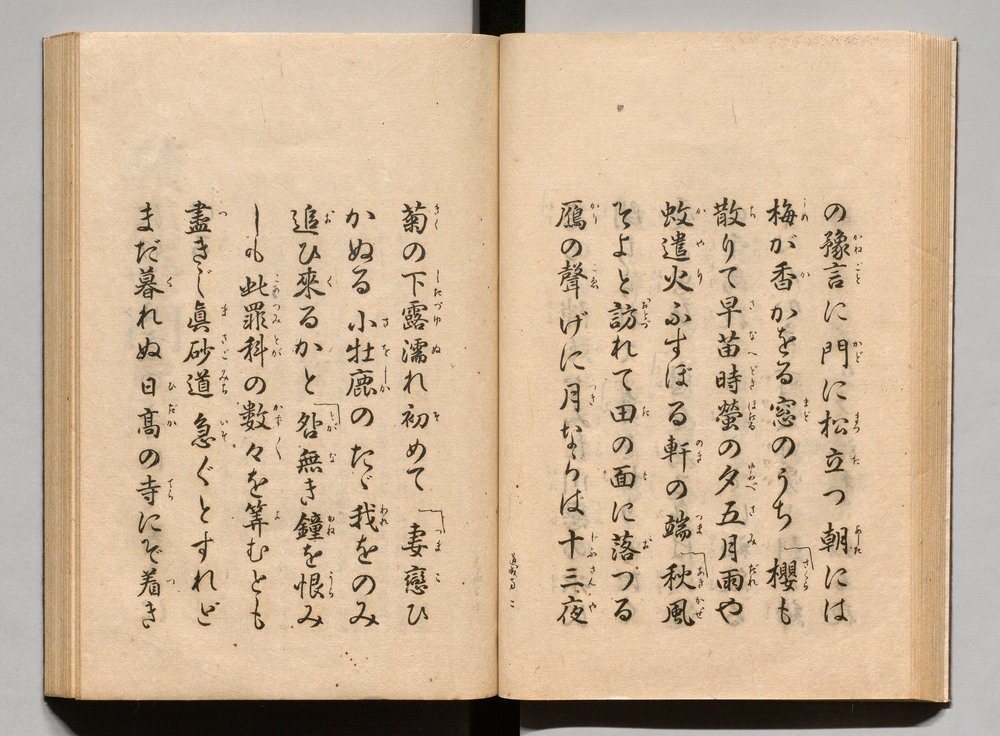 の豫言に門に松立つ朝には
梅が香かをる窓のうち「櫻も
散りて早苗時螢の夕五月雨や
蚊遣火ふすぼる軒の端「秋風
そよと訪れて田の面に落つる
鴈の聲げに月ならは十三夜
菊の下露濡れ初めて「妻戀ひ
かぬる小牡鹿のたゞ我をのみ
追ひ來るかと「咎無き鐘を恨み
しも此罪科の数々を算むとも
盡きじ眞砂道急ぐとすれど
まだ暮れぬ日高の寺にぞ着き